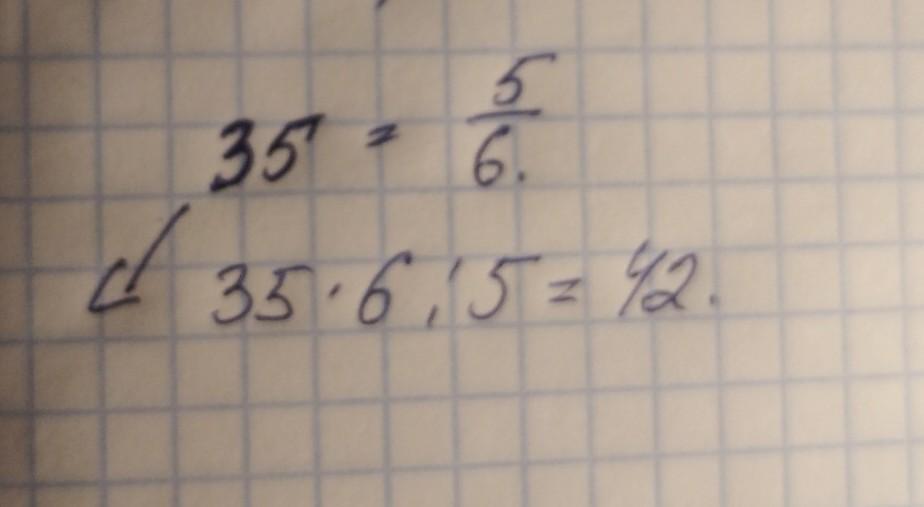 35 = 5/6.
35 · 6 : 5 = 42.